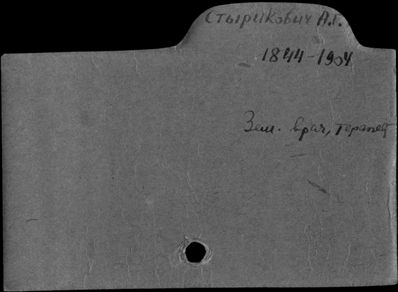 Стырикович А.Г.
1844-1904
Зем. врач, терапевт